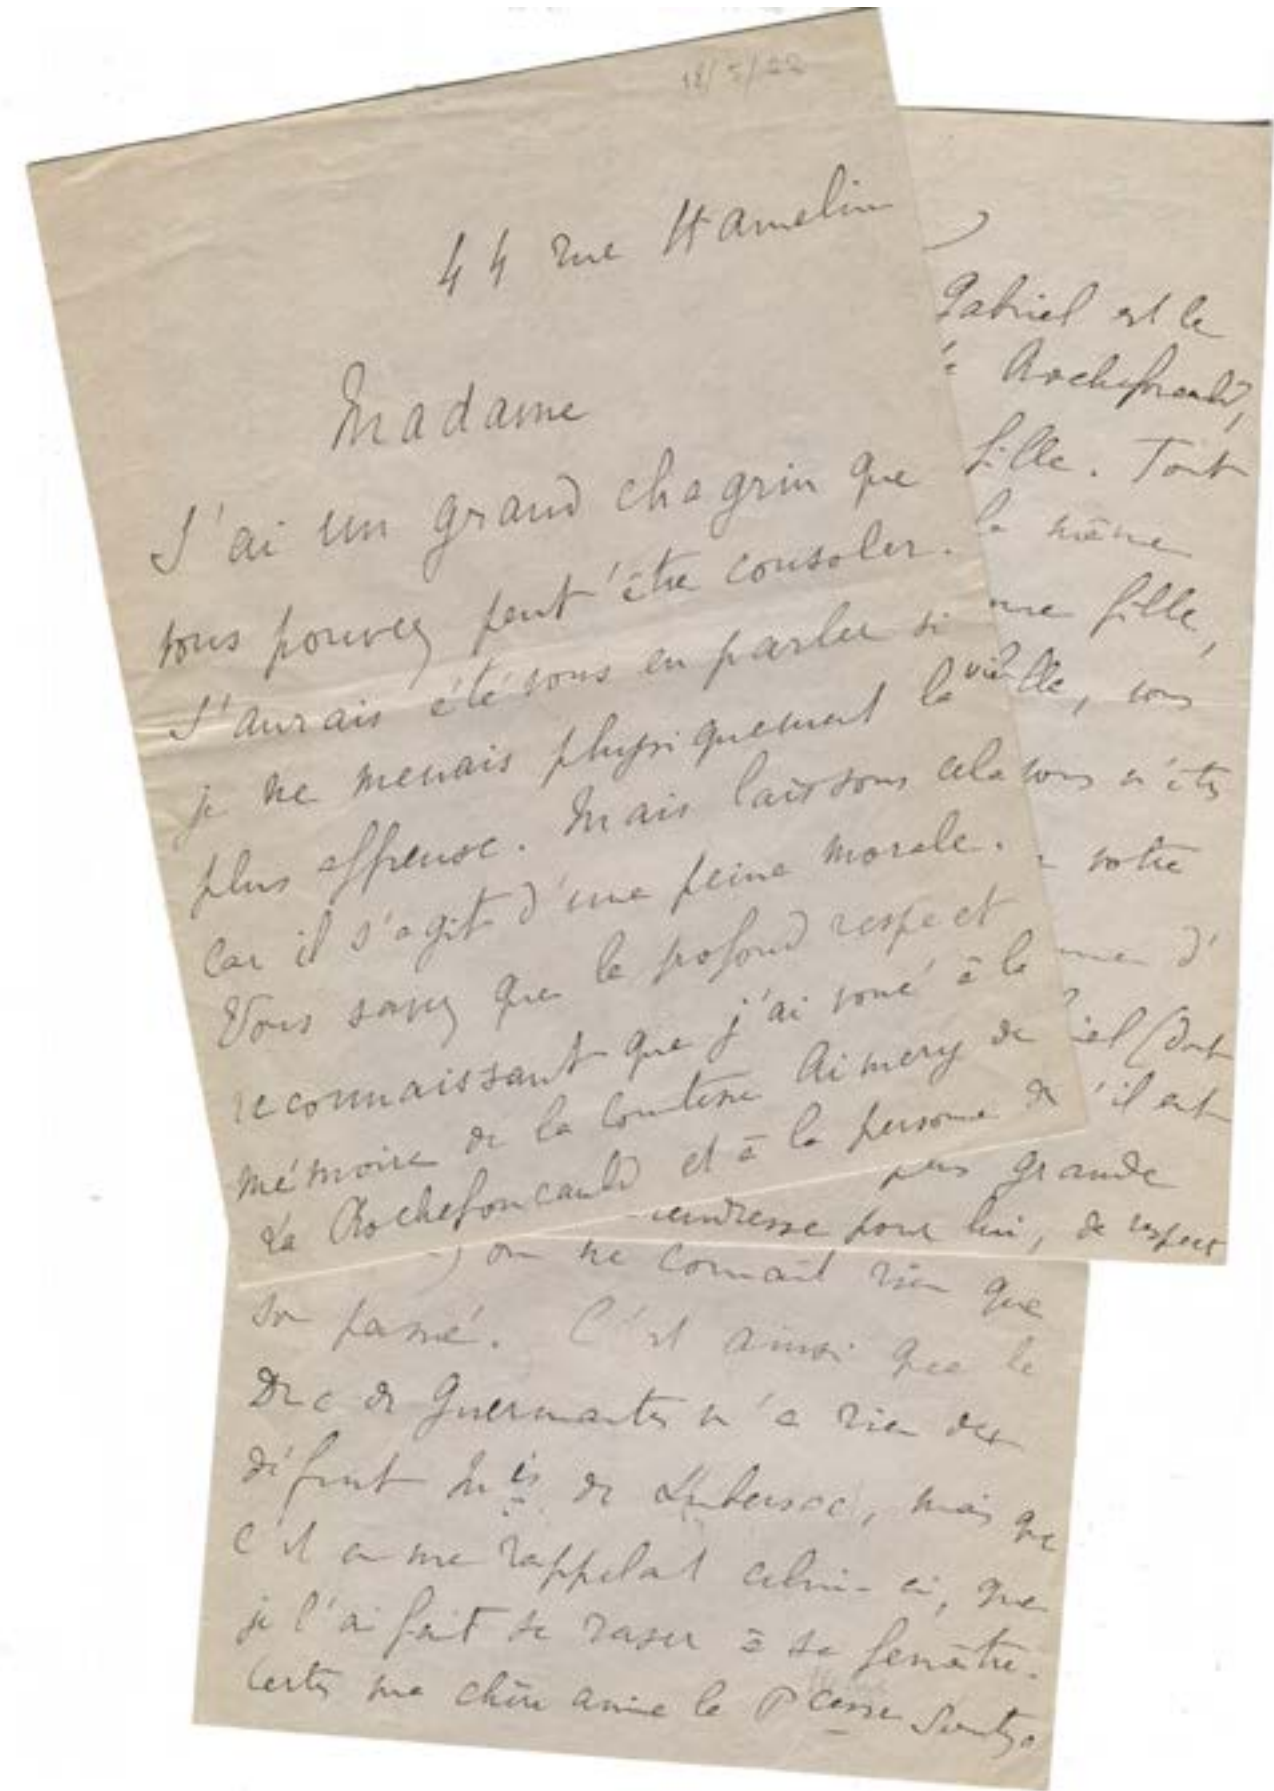 18/5/22
44 rue Hamelin
Madame
J'ai un grand chagrin que
vous pouvez peut'être consoler.
J'aurais été vous en parler si
je ne menais physiquement la vie la
plus affreuse. Mais laissons cela
car il s'agit d'une peine morale.
Vous savez que le profond respect
reconnaissant que j'ai voué à la
mémoire de la Comtesse Aimery de
La Rochefoucauld et à la personne de
Gabriel est le
Rochefoucauld,
fille. Tout
la même
fille,
vieille, vous
vous n'êtes
votre
d'
(dont
'il est
plus grande
tendresse pour lui, de respect
on ne connait rien que
son passé. C'est ainsi que le
Duc de Guermantes n'a rien du
défunt Mis de Lubersac, mais que
c'est en me rappelant celui-ci, que
je l'ai fait se raser à sa fenêtre.
Certes ma chère amie la Pcesse Soutzo